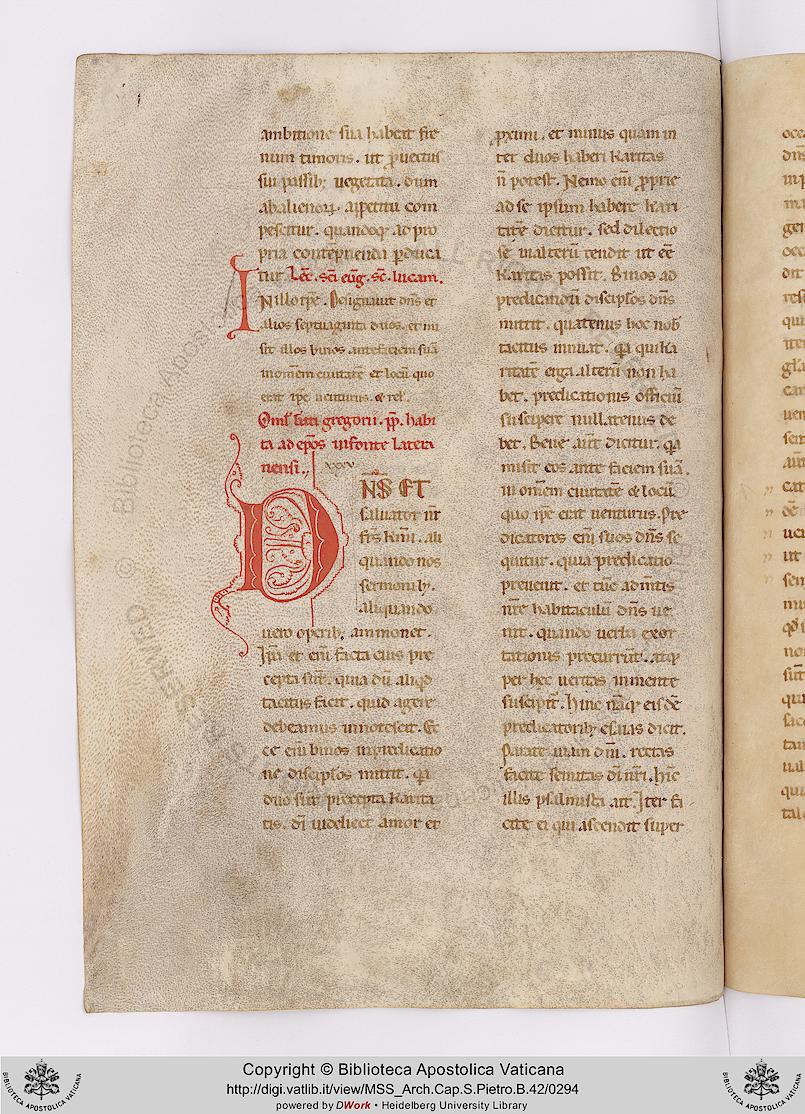 ambitione sua habeat fre
num timoris. ut puectus
sui passib; uegetata. dum
ab alienoꝝ appetitu com
pescitur. quandoq; ad pro
pria contēpnenda pducā
tur. Lec̄. sc̄i euḡ. sc̄. lucam.
IN illo tp̄e. Designauit dn̄s et
alios septuaginta duos. et mi
sit illos binos ante faciem suā
in om̄em ciuitatē et locū quo
erat ip̄e uenturus. et rel̄.
Oml̄. bāti gregorii. pp̄. habi
ta ad ep̄os in fonte latera
nensi.
xxxv
DN̄S ET
saluator nr̄
frs km̄i. ali
quando nos
sermonib;.
aliquando
uero operib; ammonet.
Ip̄a et eni facta eius pre
cepta sūt. quia dū aliqd
tacitus facit. quid agere
debeamus innotescit. Ec
ce eni binos in predicatio
ne discipłos mittit. qa
duo sūt precepta karita
tis. dī uidelicet amor et
pximi. et minus quam in
ter duos haberi karitas
n̄ potest. Nemo eni pprie
ad se ipsum habere kari
tatē dicitur. sed dilectio
se in alterū tendit ut eē
karitas possit. Binos ad
predicandū discipłos dn̄s
mittit. quatenus hoc nob̄
tacitus innuat. qa qui ka
ritatē erga alterū non ha
bet. predicationis officiū
suscipere nullatenus de
bet. Bene aūt dicitur. qa
misit eos ante faciem suā.
in omēm ciuitatē & locū.
quo ip̄e erat uenturus. Pre
dicatores eni suos dn̄s se
quitur. quia predicatio
preuenit. et tūc ad mtis
nr̄e habitaculū dn̄s ue
nit. quando uerba exor
tationis precurrūt. atq;
per hec ueritas in mente
suscipit. Hinc nāq; eisdē
predicatorib; esaias dicit.
Parate uiam dn̄i. rectas
facite semitas dī nr̄i. hīc
illis psalmista ait. Iter fa
cite ei qui ascendit super
Copyright © Biblioteca Apostolica Vaticana
http://digi.vatlib.it/view/MSS_Arch.Cap.S.Pietro.B.42/0294
powered by DWork • Heidelberg University Library